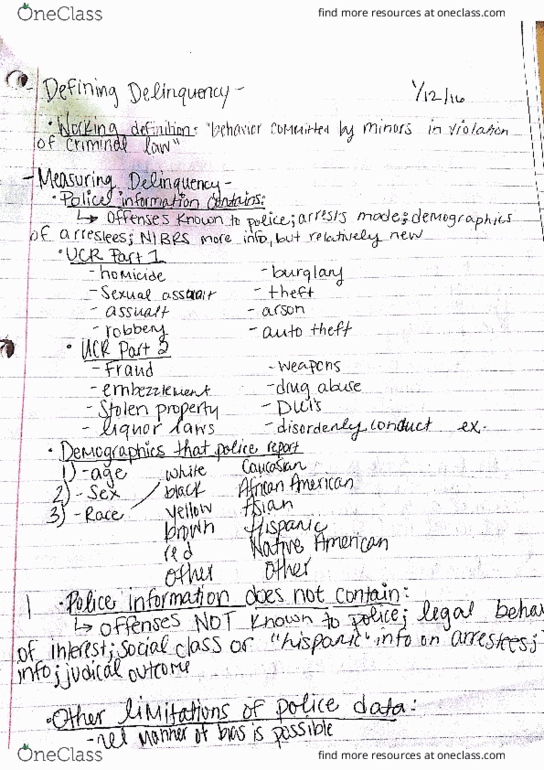 OneClass
find more resources at oneclass.com
- Defining Delinquency - 1/12/16
• Working definition: "behavior committed by minors in violation
of criminal law"
- Measuring Delinquency -
• Police information contains:
↳ offenses known to police; arrests made; demographics
of arrestees; NIBRS more info, but relatively new
• UCR Part 1
- homicide - burglary
- Sexual assault - theft
- assualt - arson
- robbery - auto theft
• UCR Part 2
- fraud - weapons
- embezzlement - drug abuse
- Stolen property - DUI's
- liquor laws - disorderly conduct ex.
• Demographics that police report
1) - age white Caucasian
2) - Sex black African American
3) - Race yellow Asian
brown Hispanic
red Native American
other other
• Police information does not contain:
↳ offenses NOT known to police; legal behav
of interest; social class or "hispanic" info on arrestees;
info; judical outcome
• Other limitations of police data:
- manner of bias is possible
OneClass
find more resources at oneclass.com